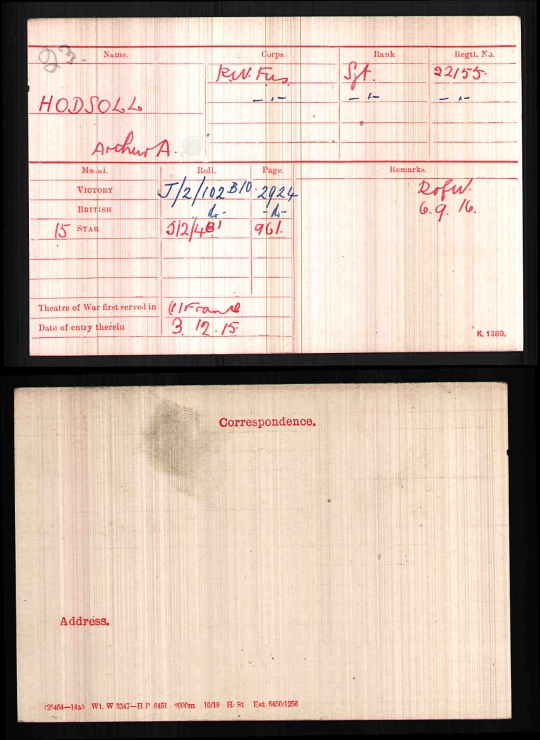 23.
Name. Corps. Rank Regtl. No.
R.W.Fus. Sgt. 22155.
HODSOLL - " - - " - - " -
Arthur A.
Medal. Roll. Page. Remarks.
VICTORY J/2/102 B10. 2924 D of W.
BRITISH do - - do - 6.9.16.
15 STAR J/2/4B1 961.
Theatre of War first served in (1) France
Date of entry therein 3.12.15
K. 1380.
Correspondence.
Address.
(25454—14a) Wt. W 3347—H.P. 6451 H. St. 10/19 Est. 5450/1256